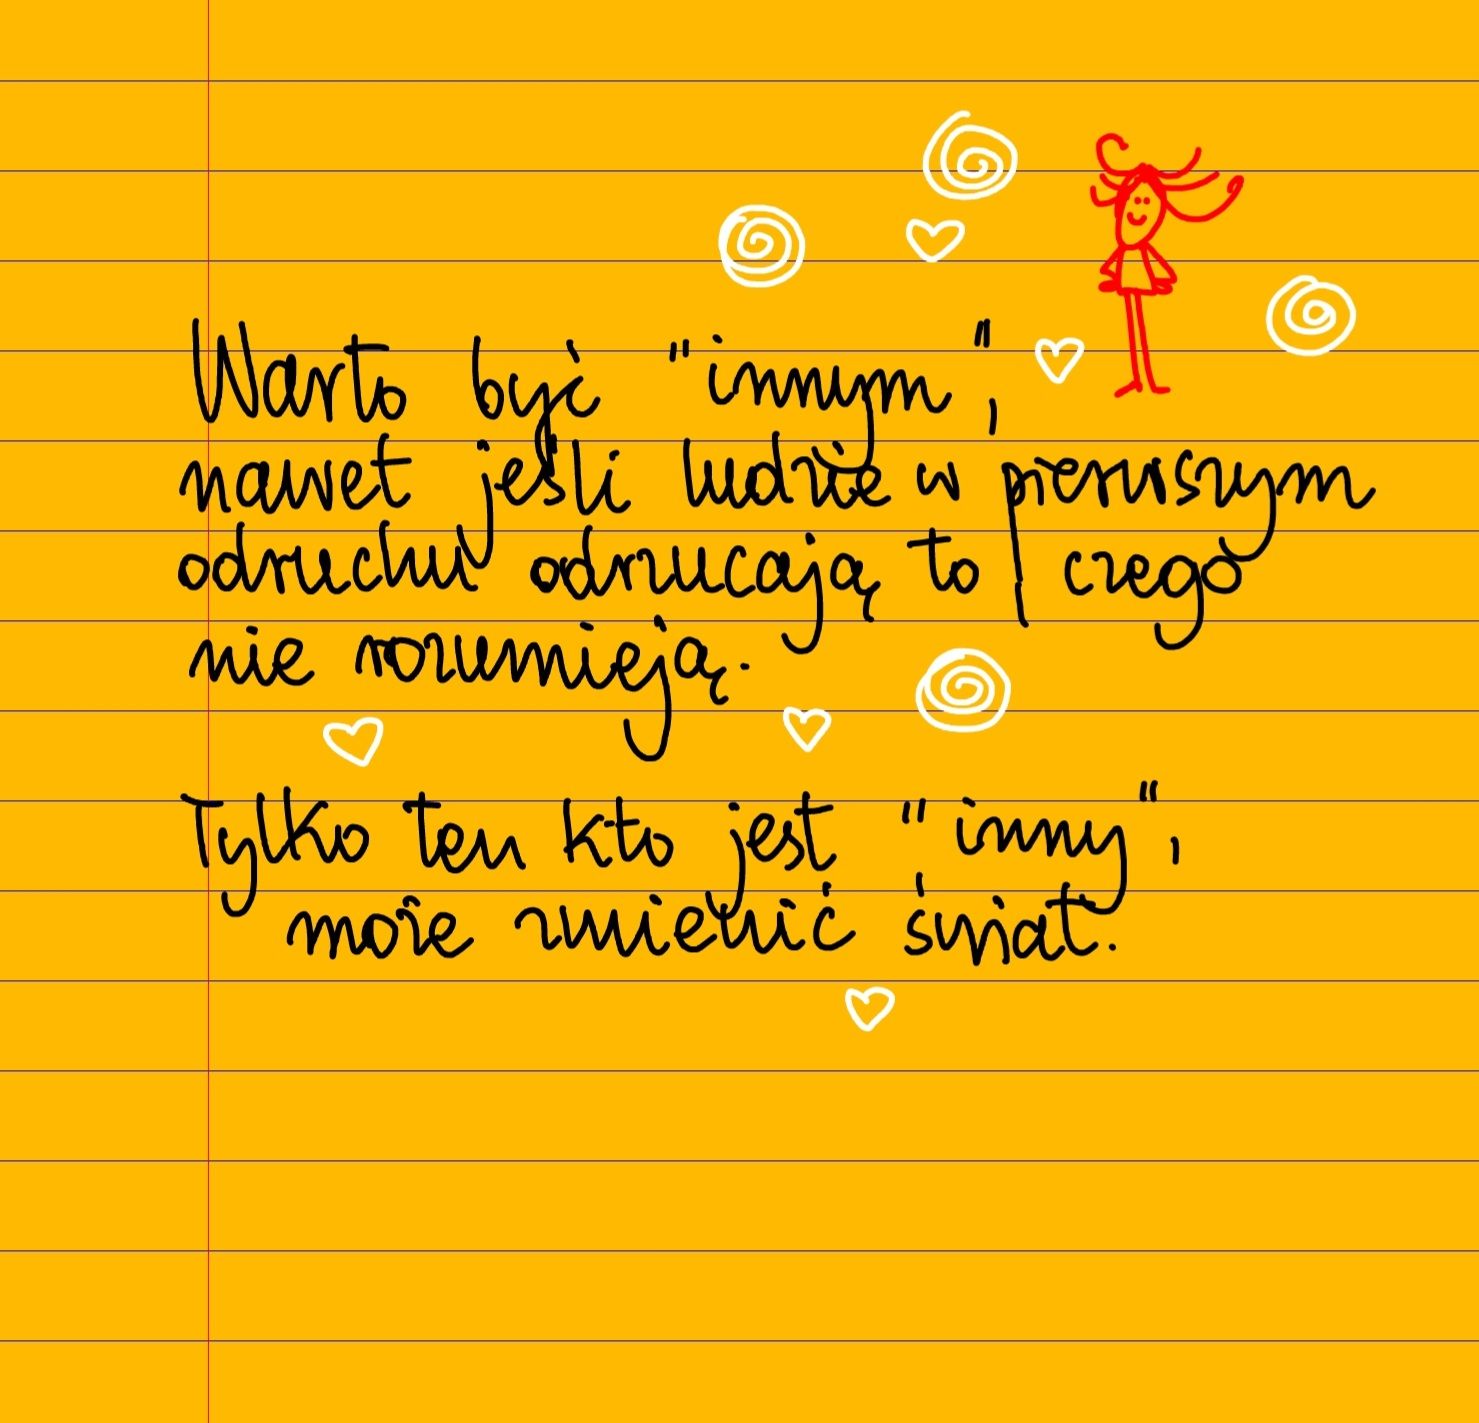 Warto być "innym",
nawet jeśli ludzie w pierwszym
odruchu odrzucają to, czego
nie rozumieją.
Tylko ten kto jest "inny",
może zmienić świat.